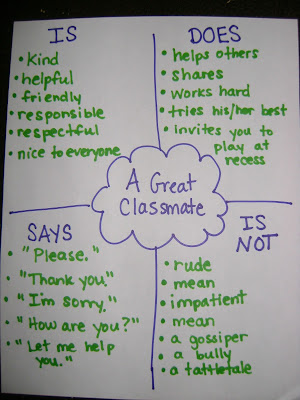 IS
• Kind
• helpful
• friendly
• responsible
• respectful
• nice to everyone
DOES
• helps others
• shares
• works hard
• tries his/her best
• invites you to
play at
recess
A Great
Classmate
SAYS
• "Please."
• "Thank you."
• "I'm sorry."
• "How are you?"
• "Let me help
you."
IS
NOT
• rude
• mean
• impatient
• mean
• a gossiper
• a bully
• a tattletale